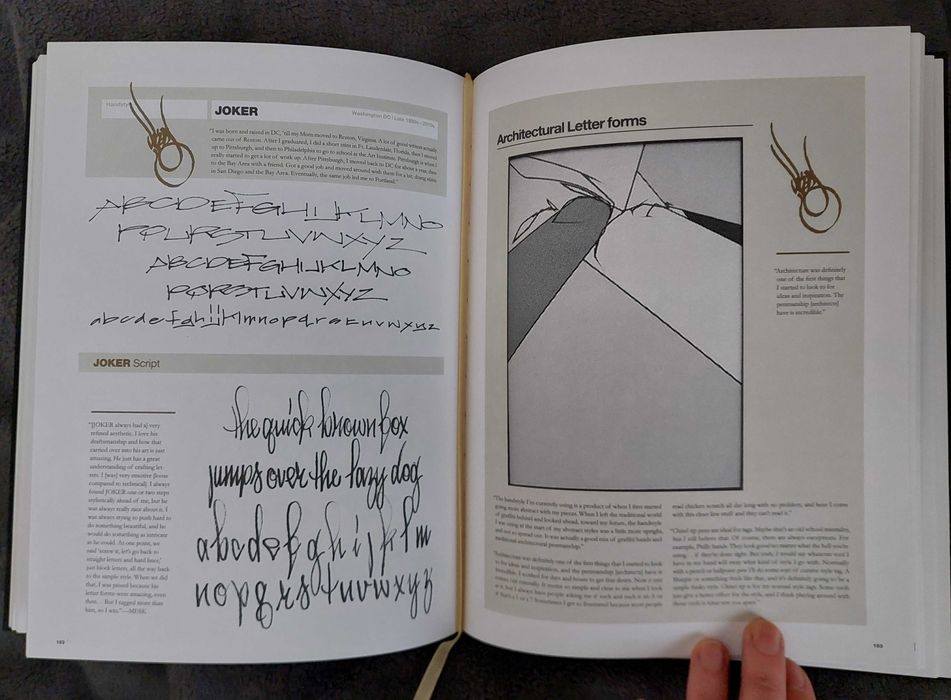 Handstyle
JOKER
Washington DC | Late 1980s - 2010s
"I was born and raised in DC, 'till my Mom moved to Reston, Virginia. A lot of good writers actually
came out of Reston. After I graduated, I did a short stint in Ft. Lauderdale, Florida, then I moved
up to Pittsburgh, and then to Philadelphia to go to school at the Art Institute. Pittsburgh is when I
really started to get a lot of work up. After Pittsburgh, I moved back to DC for about a year, then
to the Bay Area with a friend. Got a good job and moved around with them for a bit, doing stints
in San Diego and the Bay Area. Eventually, the same job led me to Portland."
ABCDEFGHIJKLMNO
PQURSTUVWXYZ
ABCDEFGHIJKLMNO
PQRSTUVWXYZ
abcdefghijklmnopqrstuvwxyz
JOKER Script
"[JOKER always had a] very
refined aesthetic. I love his
draftsmanship and how that
carried over into his art is just
amazing. He just has a great
understanding of crafting let-
ters. I [was] very emotive [form
compared to technical]. I always
found JOKER one or two steps
stylistically ahead of me, but he
was always really nice about it. I
was always trying to push hard to
do something beautiful, and he
would do something as intricate
as he could. At one point, we
said 'screw it, let's go back to
straight letters and hard lines,'
just block letters, all the way back
to the simple style. When we did
that, I was pissed because his
letter forms were amazing, even
then... But I tagged more than
him, so I win."—MESK
the quick brown fox
jumps over the lazy dog
abcdefghijklm
nopqrstuvwxyz
182
Architectural Letter forms
"Architecture was definitely
one of the first things that
I started to look to for
ideas and inspiration. The
penmanship [architects]
have is incredible."
"The handstyle I'm currently using is a product of when I first started
going more abstract with my pieces. When I left the traditional world
of graffiti behind and looked ahead, toward my future, the handstyle
I was using at the start of my abstract styles was a little more upright,
and not so spread out. It was actually a good mix of graffiti hands and
traditional architectural penmanship."
"Architecture was definitely one of the first things that I started to look
to for ideas and inspiration, and the penmanship [architects] have is
incredible. I worked for days and hours to get that down. Now it just
comes out naturally. It seems so simple and clear to me when I look
at it, but I always have people asking me if such and such is an S or
if that's a 1 or 7. Sometimes I get so frustrated because most people
read chicken scratch all day long with no problem, and here I come
with this clean line stuff and they can't read it."
"Chisel tip pens are ideal for tags. Maybe that's an old school mentality,
but I still believe that. Of course, there are always exceptions. For
example, Philly hands. They look good no matter what the hell you're
using... if they're done right. But yeah, I would say whatever tool I
have in my hand will sway what kind of style I go with. Normally
with a pencil or ballpoint pen I'll do some sort of cursive style tag. A
Sharpie or something thick like that, and it's definitely going to be a
simple funky style. Chisel tip is for my normal style tags. Some tools
just give a better effect for the style, and I think playing around with
those tools is what sets you apart."
183